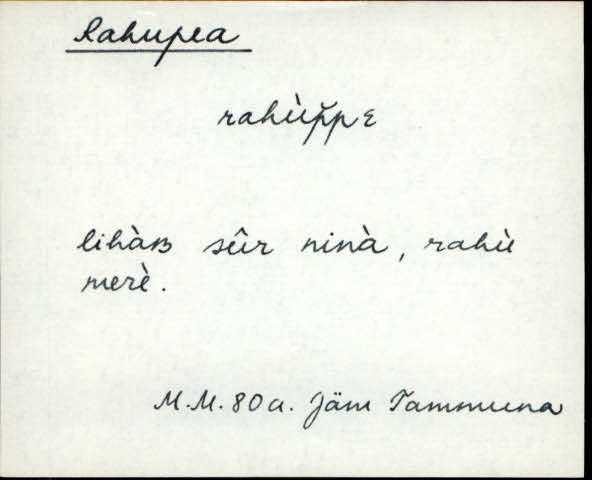 Rahupea
rahùp̆pɛ
lihàʙ sûr ninà, rahù
merè.
M.M. 80 a. Jäm Tammuna